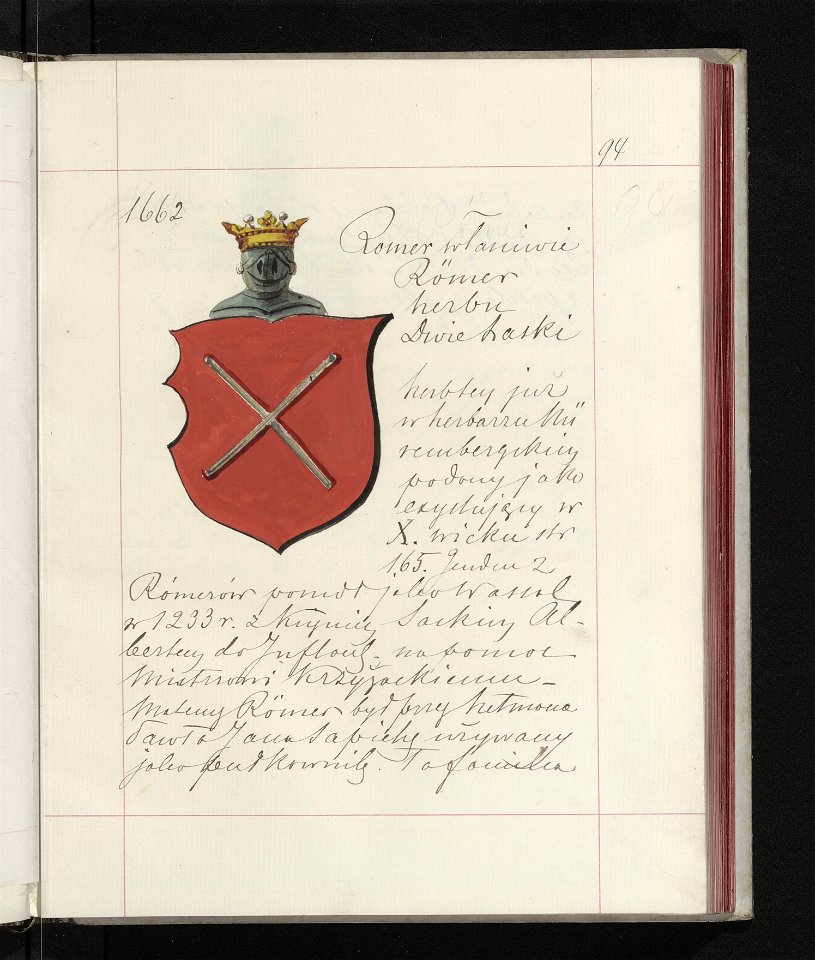 94
1662
Romer właściwie
Römer
herbu
Dwie Laski
herb ten już
w herbarzu Nü
rembergskim
podany jako
exystujący w
X. wieku str
165. Jenden z
Römerów poszedł jako Wassal
w 1233 r. z Księciem Saskim Al-
bertem do Inflant. na pomoc
Mistrzowi Krzyżackiemu –
Mateusz Römer był przez hetmana
Pawła Jana Sapiehę używany
jako pułkownik. Ta familia